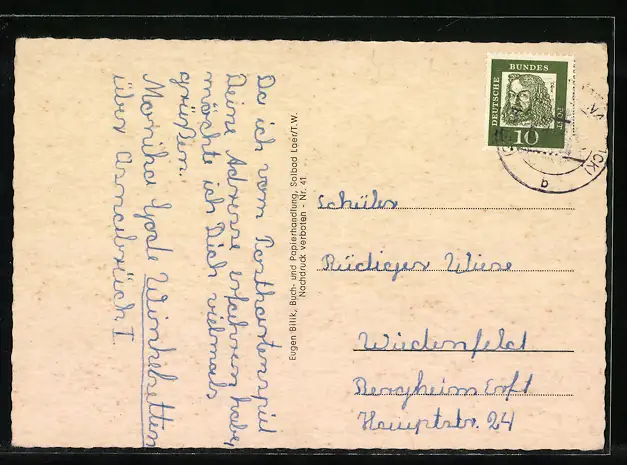 Da ich vom Postkartenspiel
Deine Adresse erfahren habe,
möchte ich Dich vielmals
grüßen.
Monika Gode
über Osnabrück I.
Eugen Bilik, Buch- und Papierhandlung, Solbad Laer/T.W.
Nachdruck verboten - Nr. 41
DEUTSCHE
BUNDES
POST
10
b
Schüler
Rüdiger Wiese
Wüdenfeld
Bergheim Erft
Hauptstr. 24